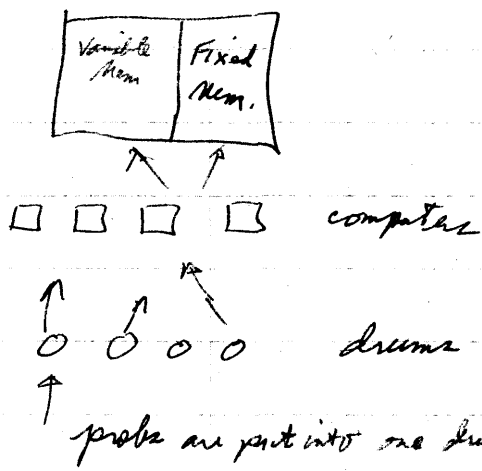 Variable
Mem
Fixed
Mem.
computers
drums
probs are put into one